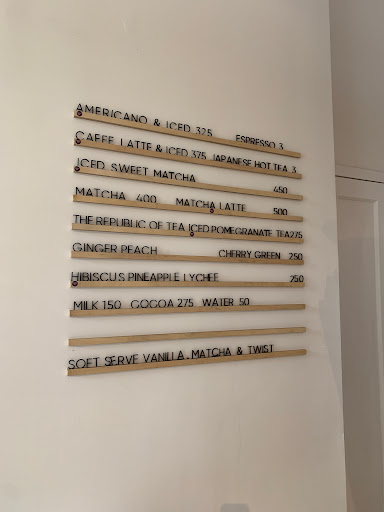 AMERICANO & ICED 325 ESPRESSO 3
CAFFE LATTE & ICED 375 JAPANESE HOT TEA 3
ICED SWEET MATCHA 450
MATCHA 400 MATCHA LATTE 500
THE REPUBLIC OF TEA ICED POMEGRANATE TEA 275
GINGER PEACH CHERRY GREEN 250
HIBISCUS PINEAPPLE LYCHEE 250
MILK 150 COCOA 275 WATER 50
SOFT SERVE VANILLA, MATCHA & TWIST